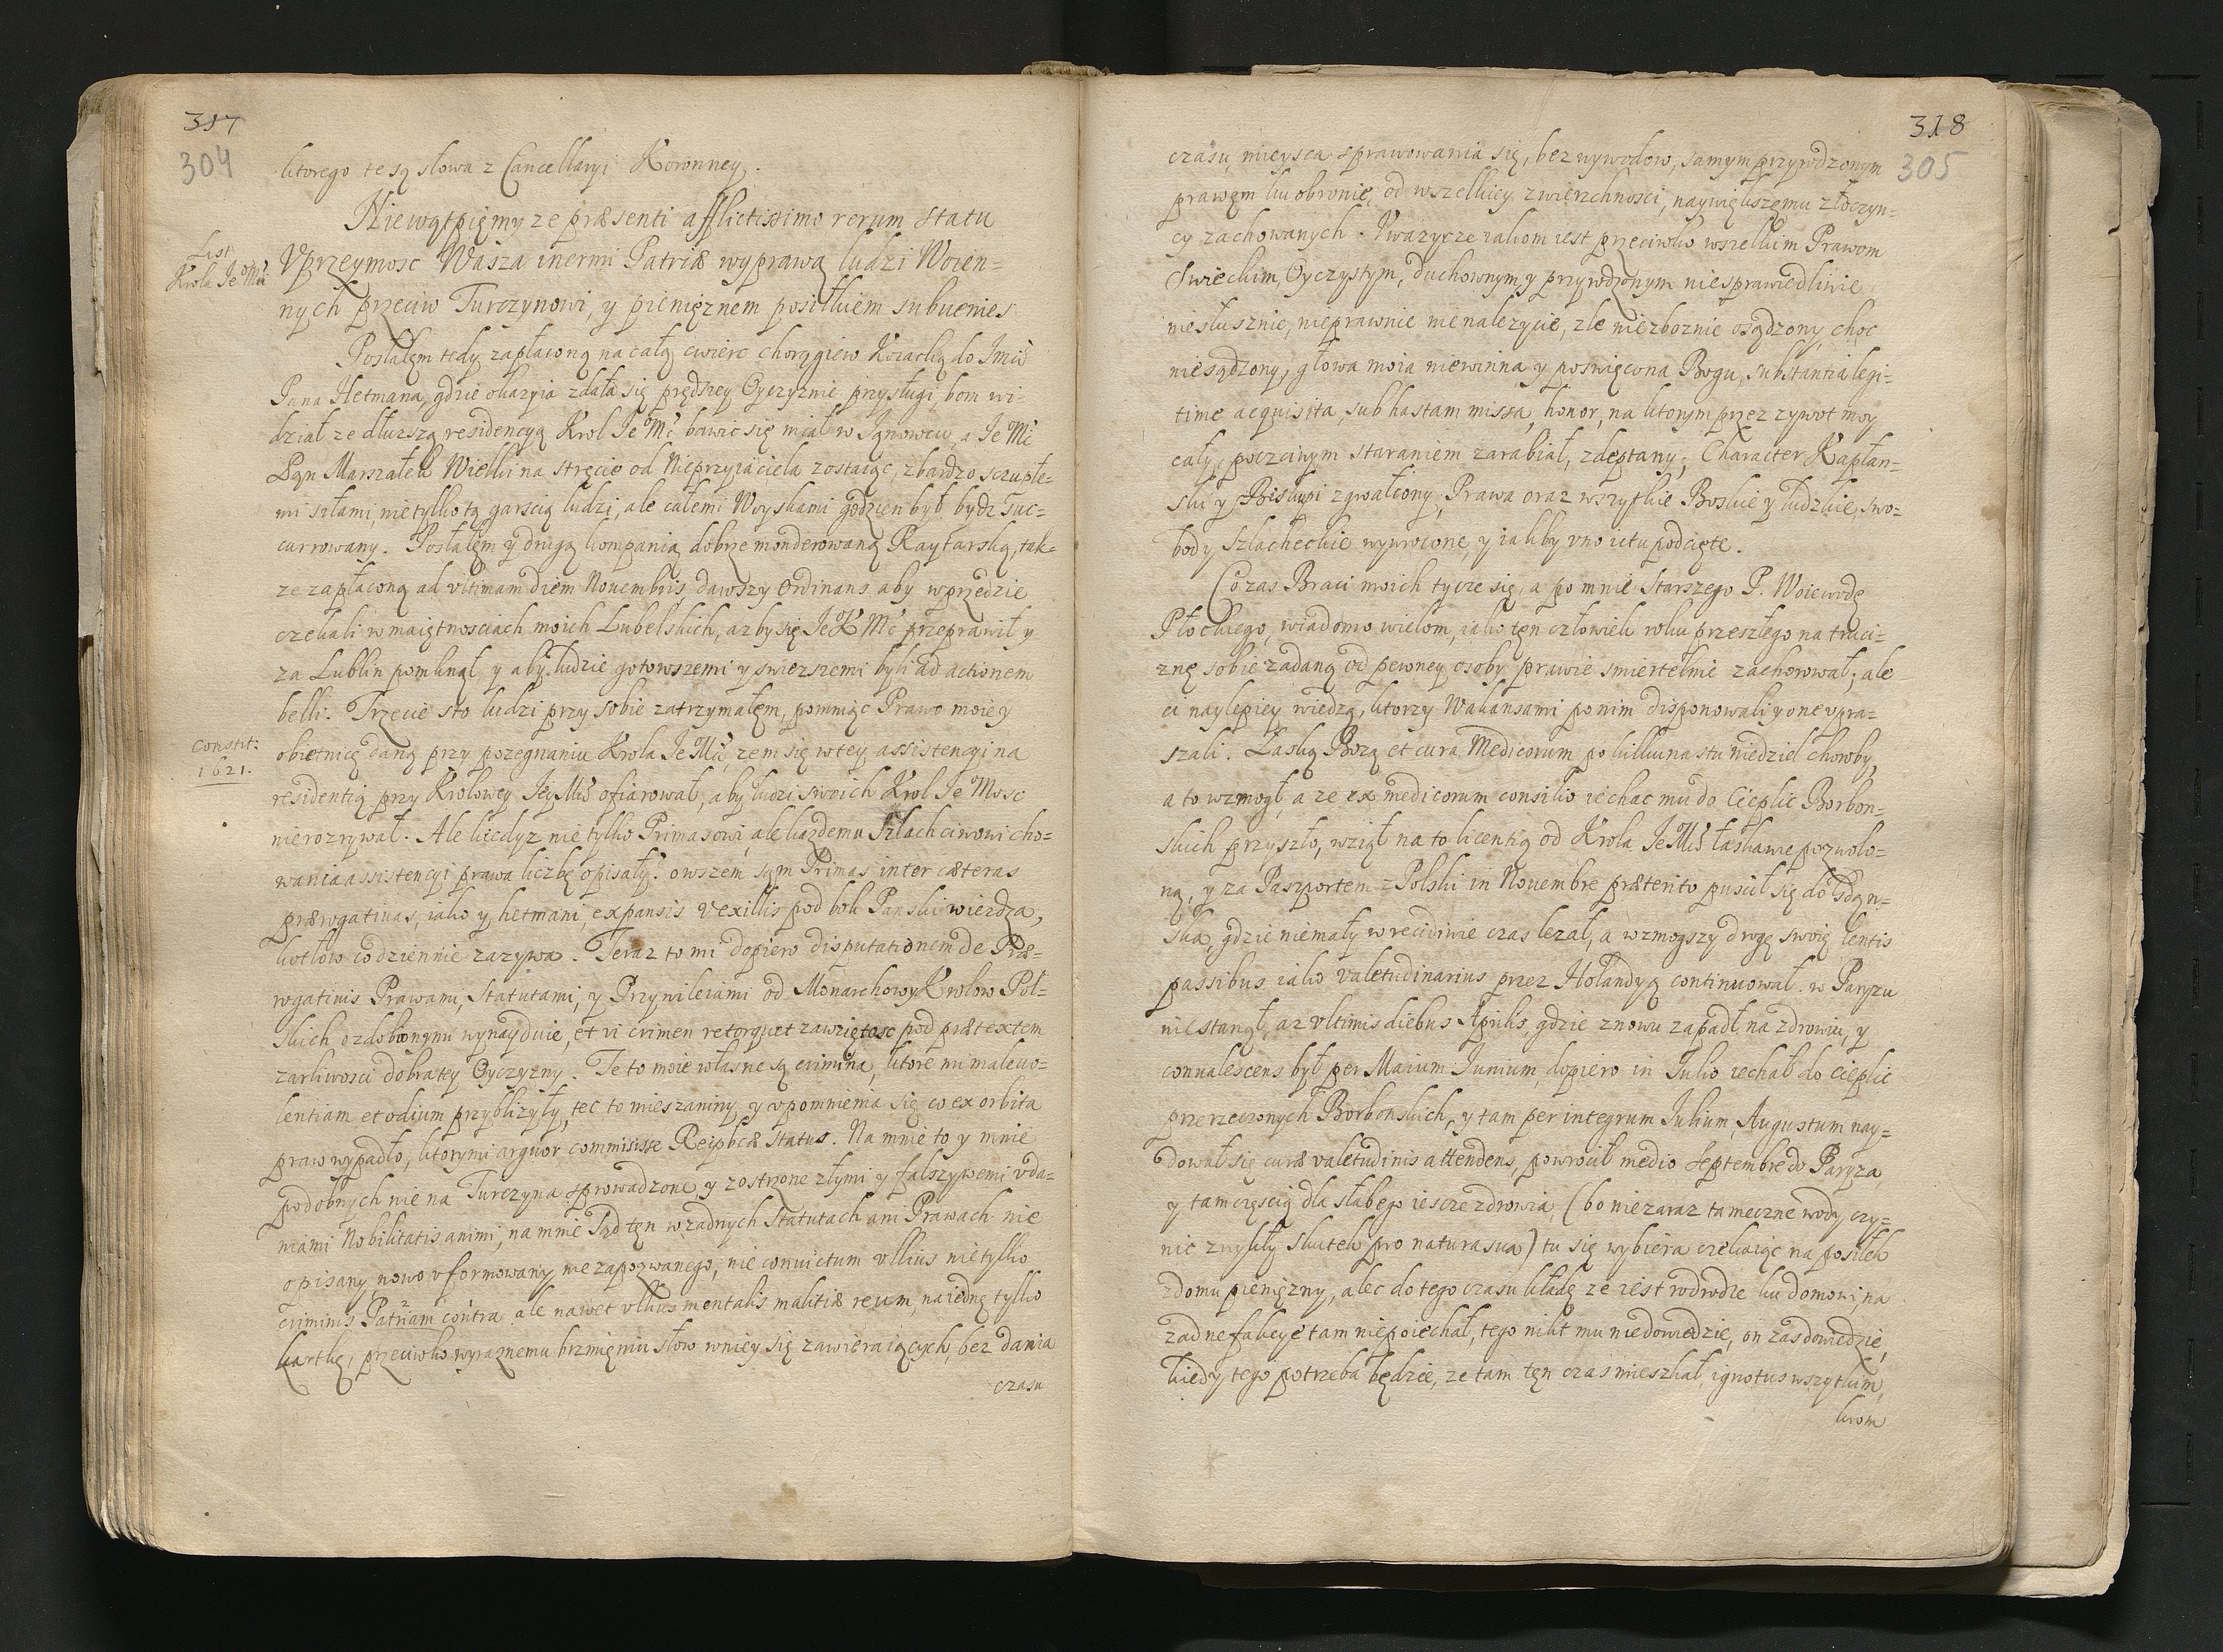 317
304
ktorego te są słowa z Cancellaryi Koronney.
Niewątpięmy ze præsenti afflictissimo rerum statu
List
Krola Je Mći
Vprzeymosc Wasza inermi Patriæ wyprawą ludzi Woien=
nych przeciw Turczynowi, y pienięznem posiłkiem subuenies
Posłałęm tedy zapłaconą na całą cwierc chorągiew Kozacką do Jmći
Pana Hetmana, gdzie okazyia zdała się prędszey Oyczyznie przysługi, bom wi=
dział ze dłuzszą residencyą Krol Je Mć bawic się miał w Janowcu, a Je Mć
Pan Marszałek Wielki na stręcie od Nieprzyiaciela zostaiąc, z bardzo szczupłe=
mi siłami, nie tylko tą garscią ludzi, ale całemi Woyskami godzien był bydz suc=
currowany. Posłałęm y drugą kompanią dobrze monderowaną Raytarską, tak=
ze zapłaconą ad vltimam diem Nouembris dawszy ordinans aby wprzedzie
czekali w maiętnosciach moich Lubelskich, azby się Je K Mć przeprawił y
za Lublin pomknął, y aby ludzie gotowszemi y swiezszemi byli ad actionem
belli. Trzecie sto ludzi przy sobie zatrzymałęm, pomniąc Prawo moie y
Constit:
1621.
obietnicę daną przy pozegnaniu Krola Je Mći, zem się w tey assistencyi na
residentią przy Krolowey Jey Mći ofiarował, aby ludzi swoich Krol Je Mosc
nierozrywał. Ale kiedyz nie tylko Primasowi, ale kazdemu Szlachcicowi cho=
wania assistencyi prawa liczbę opisały? owszem sam Primas inter cæteras
prærogatiuas, iako y hetmani, expansis vexillis pod bok Panski wiezdza,
kotłow codziennie zazywa. Teraz to mi dopiero disputationem de Præ=
rogatiuis Prawami, Statutami, y Przywileiami od Monarchow y Krolow Pol=
skich ozdobionymi wynayduie, et vi crimen retorquet zawziętosc pod prætextem
zarliwosci dobra tey Oyczyzny. Te to moie własne są crimina, ktore mi maleuo=
lentiam et odium przyblizyły, tec to mieszaniny, y vpomnienia się co ex orbita
praw wypadło, ktorymi arguor commisisse Reipbcæ status. Na mnie to y mnie
podobnych nie na Turczyna sprowadzone, y zostrzone złymi y falszywemi vda=
niami Nobilitatis animi, na mnie Sąd tęn w zadnych Statutach ani Prawach nie
opisany, nowo vformowany nie zapozwanego, nie conuictum vllius nie tylko
criminis Patriam contra ale nawet vllius mentalis malitiæ reum, na iednę tylko
kartkę, przeciwko wyraznemu brzmięniu słow w niey się zawieraiących, bez dania
czasu
318
305
czasu, mieysca sprawowania się, bez wywodow, samym przyrodzonym
prawęm ku obronie, od wszelkiey zwierzchnosci, naywiększemu złoczyn=
cy zachowanych. Uwazycze iakom iest przeciwko wszelkim Prawom
Swieckim, Oyczystym, duchownym, y przyrodzonym niesprawiedliwie
niesłusznie, nieprawnie nienalezycie, zle niezboznie osądzony, choc
niesądzony, głowa moia niewinna y poswięcona Bogu, substantia legi=
time acquisita, sub hastam missa, honor, na ktorym przez zywot moy
cały, poczciwym staraniem zarabiał, zdeptany; Character Kapłan=
ski y Biskupi zgwałcony; Prawa oraz wszytkie Boskie y ludzkie, swo=
body Szlacheckie wywrocone, y iakby vno ictu podcięte.
Co zas Braci moich tycze się, a po mnie Starszego P. Woiewodę
Płockiego, wiadomo wielom, iako tęn człowiek roku przeszłego na truci=
znę sobie zadaną od pewney osoby prawie smiertelnie zachorował; ale
ci naylepiey wiedzą, ktorzy Wakansami po nim disponowali y one vpra=
szali. Łaską Bozą et cura Medicorum po kilkunastu niedziel choroby,
a to wzmogł, a ze ex medicorum consilio iechac mu do Cieplic Borbon=
skich przyszło, wziął na to licentią od Krola Je Mći łaskawie pozwolo=
ną, y za Paszportem z Polski in Nouembre præterito puscił się do Gdan=
ska, gdzie niemały w recidiuie czas lezał, a wzmogszy drogę swoię lentis
passibus iako valetudinarius przez Holandyą continuował. w Paryzu
nie stanął, az vltimis diebus Aprilis, gdzie znowu zapadł na zdrowiu, y
conualescens był per Maium Junium, dopiero in Julio iechał do cieplic
przerzeczonych Borbonskich, y tam per integrum Julium, Augustum nay=
dował się curæ valetudinis attendens, powrocił medio Septembre do Paryza,
y tam częscią dla słabego ieszcze zdrowia, (bo nie zaraz tameczne wody czy=
nic zwykły skutek pro natura sua) tu się wybiera czekaiąc na posiłek
z domu pienięzny, alec do tego czasu kładę ze iest w drodze ku domowi, na
zadne fakcye tam nie poiechał, tego nikt mu niedowiedzie, on zas dowiedzie,
kiedy tego potrzeba będzie, ze tam tęn czas mieszkał, ignotus wszytkim,
krom